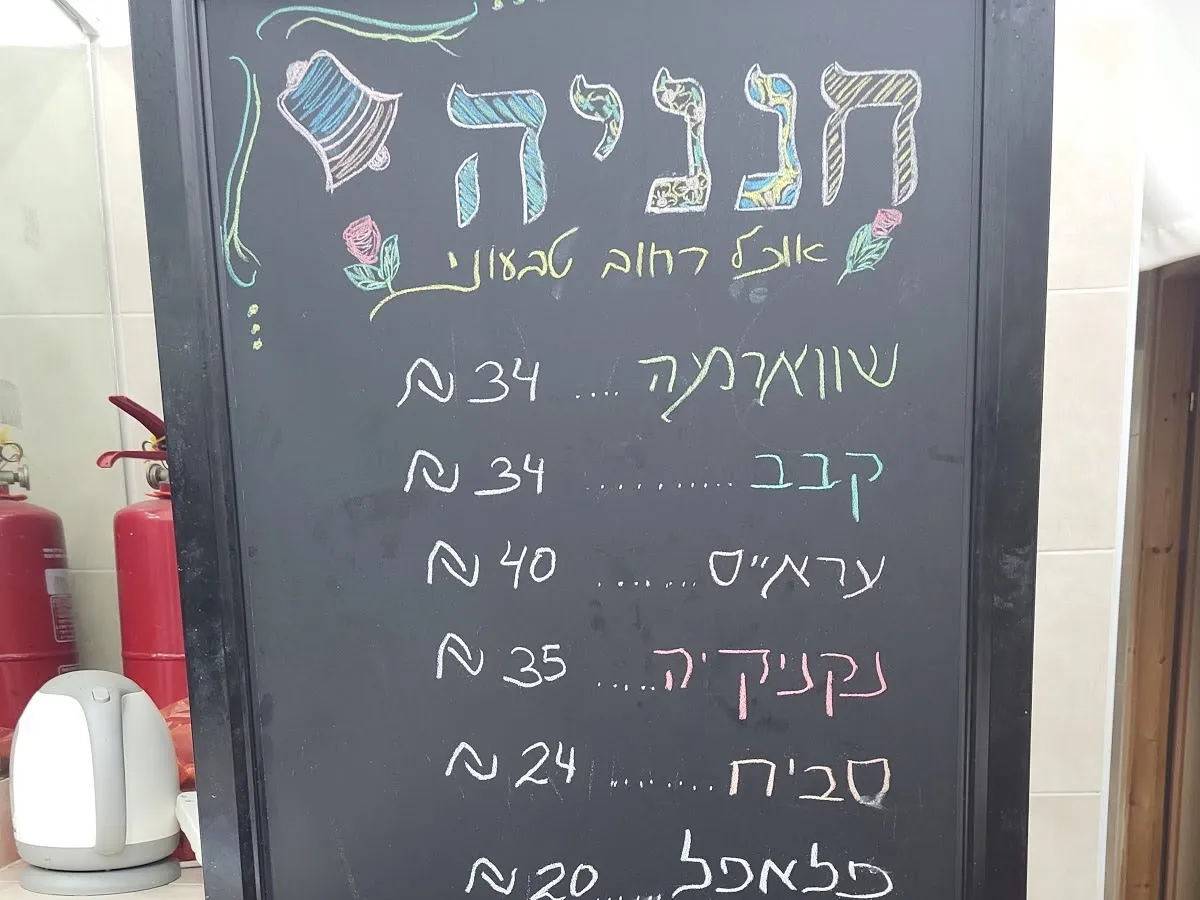 חנניה
אוכל רחוב טבעוני
שווארמה .... 34 ₪
קבב .......... 34 ₪
עראי״ס ....... 40 ₪
נקניקיה ..... 35 ₪
סביח ........ 24 ₪
פלאפל ...... 20 ₪